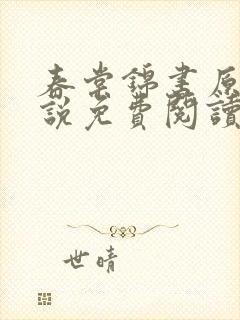 春棠錦畫原
說免費閱讀
世晴